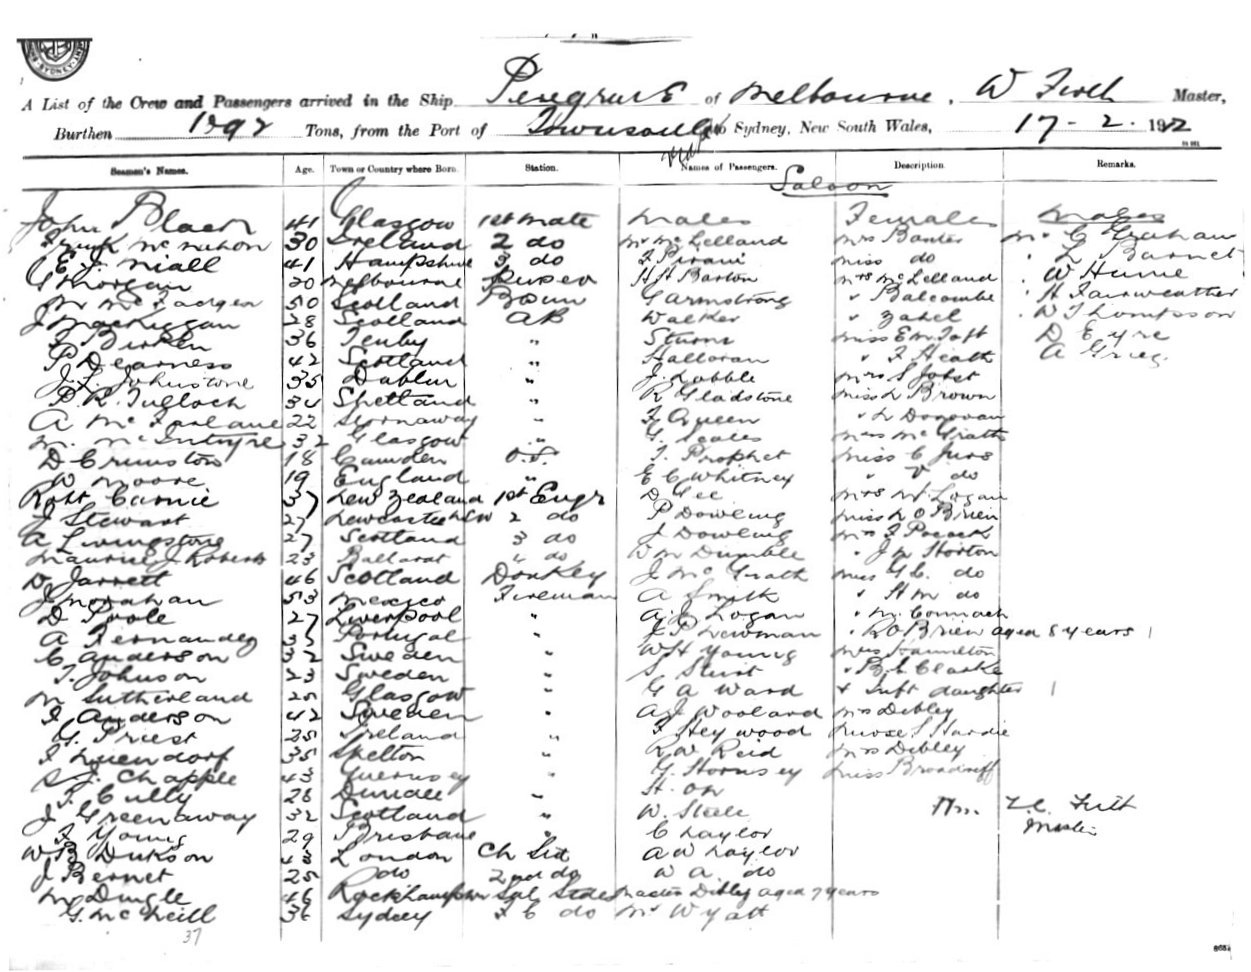 A List of the Crew and Passengers arrived in the Ship Peregrine of Melbourne, W Firth Master,
Burthen Tons, from the Port of Townsville to Sydney, New South Wales, 17-2-
Seamen's Names. Age. Town or Country where Born. Station. Names of Passengers. Description. Remarks.
Saloon
John 41 Glasgow 1st mate Males Females Males
Frank McMahon 30 Ireland 2 do Mr McLelland Mrs Baxter Mr G Graham
E. J. Niall 41 Hampshire 3 do F Pirani Miss do L Barnet
G Morgan 20 Melbourne Purser H H Barton Mrs McLelland W Hume
50 Scotland Bosun G Armstrong " Balcombe H Fairweather
J 28 Scotland AB Walker " Zahel W Thompson
36 Tenby " Miss E M Taft D Eyre
P Dearness 42 Scotland " Halloran " F Heath A Grieg
J. L. Johnstone 35 Dublin " J Mrs S Jobst
P R Tulloch 34 Shetland " R Gladstone Miss L Brown
A McFarlane 22 Stornaway " F Queen " L Donovan
M. McIntyre 32 Glasgow " G. Scales Mrs McGrath
D 18 Camden O.S. T Prophet Miss C
W Moore 19 England E C Whitney " V do
Robt Carnie 37 New Zealand 1st Engr D Gee Mrs W Logan
J Stewart 27 Newcastle NSW 2 do P Dowling Miss L O'Brien
A Livingstone 27 Scotland 3 do J Dowling Mrs F Pocock
Maurice J Roberts 23 Ballarat 4 do W M Dumble " J W Horton
D Jarrett 46 Scotland Donkey J McGrath Miss G L. do
J Monahan 53 Mexico Fireman A Smith " H M do
D Poole 27 Liverpool " A J Logan " McCormack
A Fernandez 35 Portugal " J T Newman " R O'Brien aged 8 years 1
C Anderson 32 Sweden " W H Young Miss Hamilton
T. Johnson 23 Sweden " S Sturt " B L Clarke
M Sutherland 25 Glasgow " G A Ward & Inft daughter 1
J Anderson 42 Sweden " A J Woolard Mrs Dibley
G. Priest 25 Ireland " F Heywood Nurse S Hardie
35 Skelton R W Reid Mrs Dibley
S J. Chapple 43 Guernsey " G. Hornsey Miss Broadriff
F. Cully 28 Dundee " H. Orr
J Greenaway 32 Scotland " W. Steele Firth
F Young 29 Brisbane " C Taylor Master
W B Dickson 43 London Ch Std A W Taylor
J Bernet 25 do 2nd do W A. do
M Dingle 46 Rockhampton Sal Stdess Master Dibley aged 7 years
G. McNeill 36 Sydney F C do Mr Wyatt
37